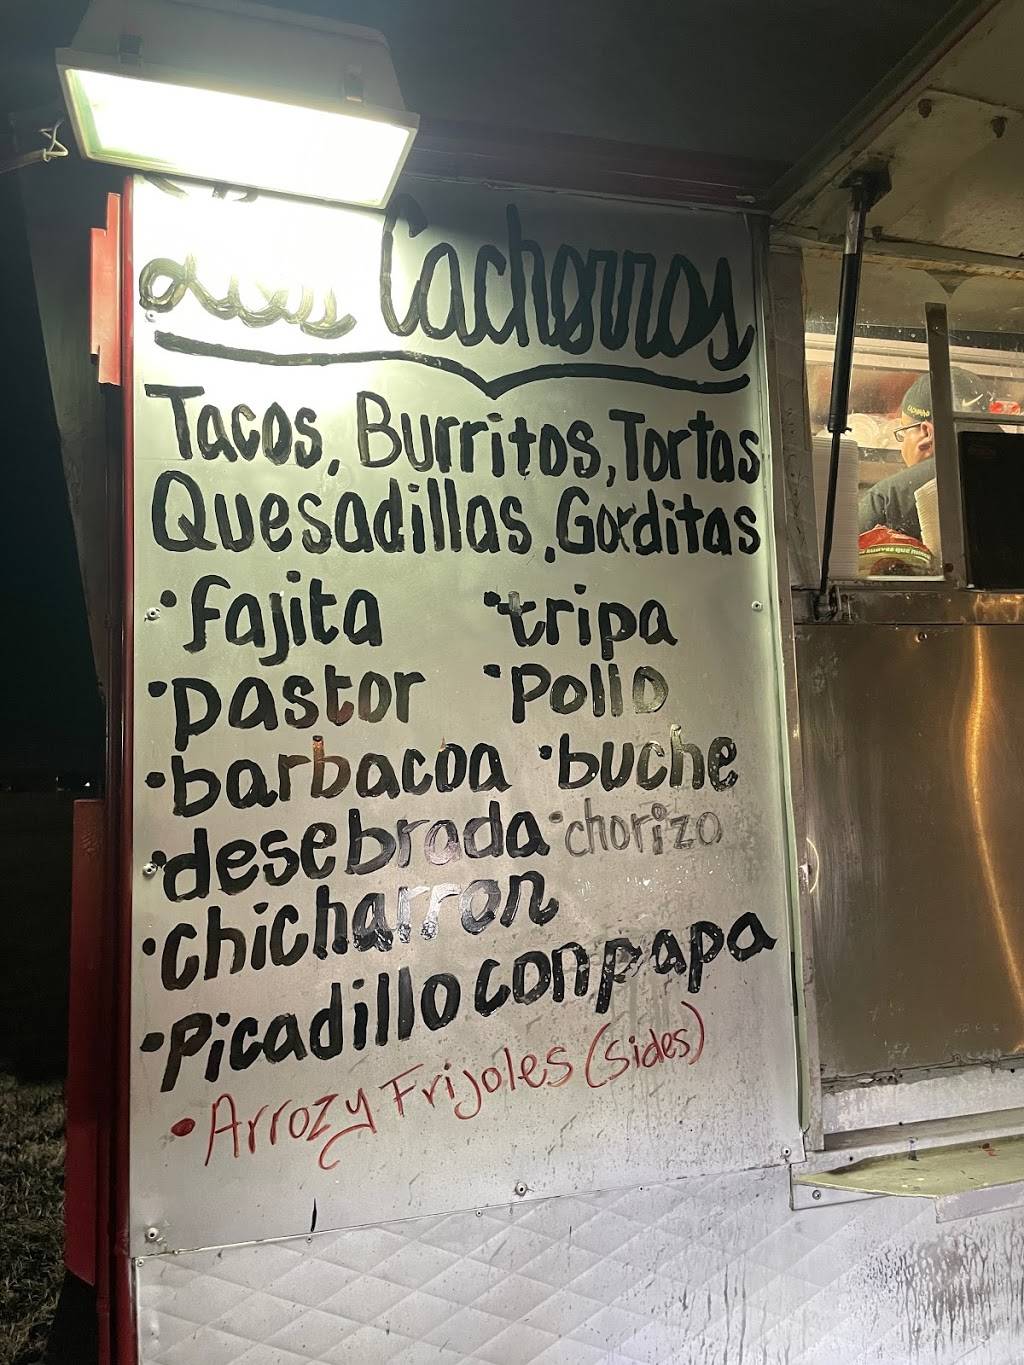 Los Cachorros
Tacos, Burritos, Tortas
Quesadillas, Gorditas
• fajita • tripa
• pastor • Pollo
• barbacoa • buche
• desebrada • chorizo
• chicharron
• Picadillo con papa
• Arroz y Frijoles (sides)